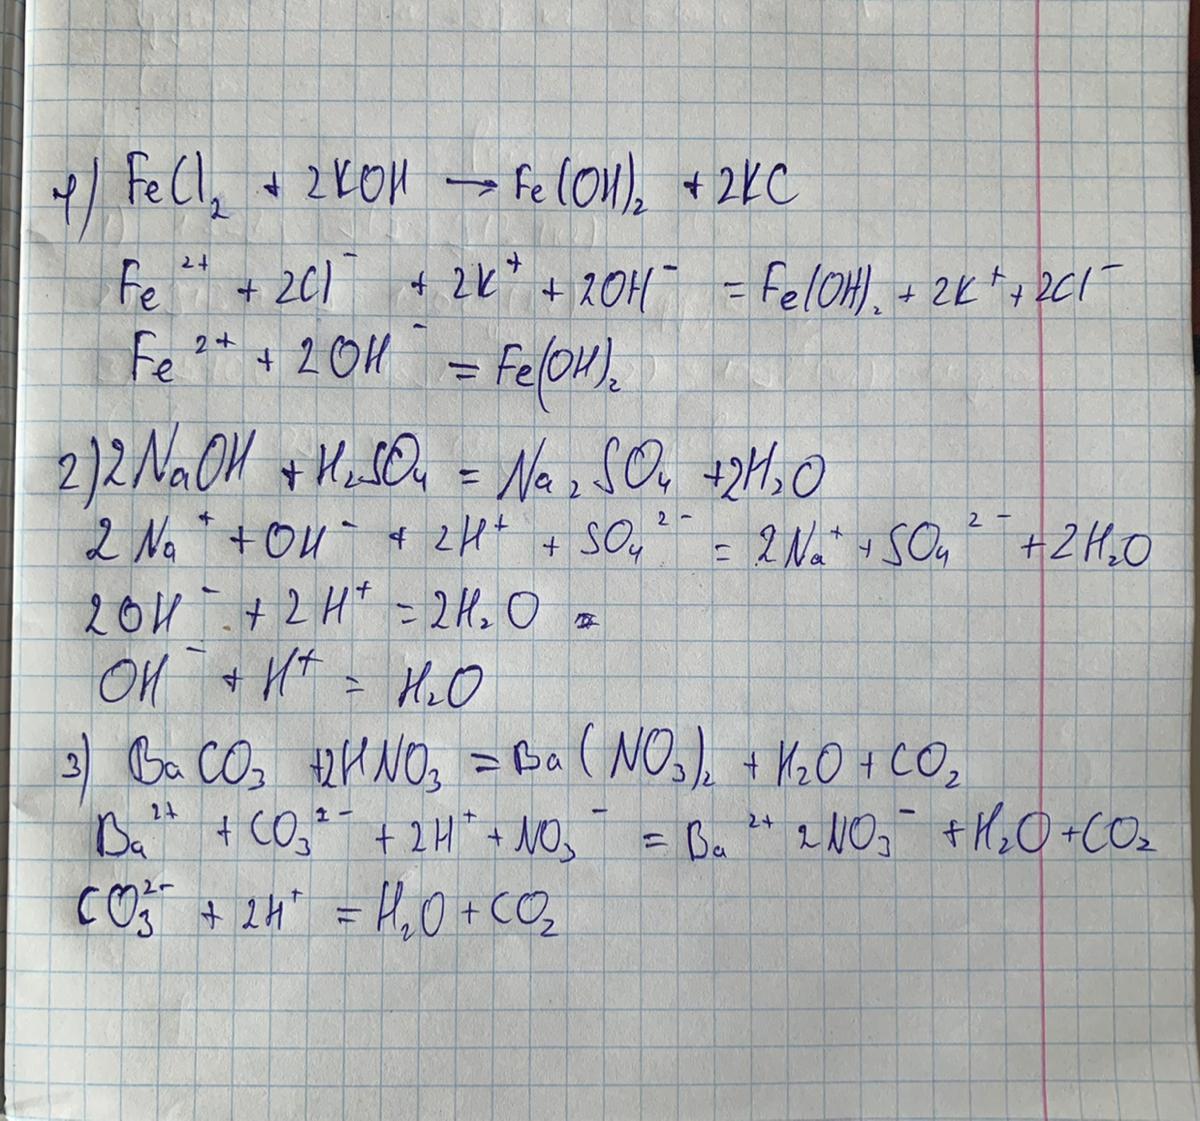 1) FeCl₂ + 2KOH → Fe(OH)₂ + 2KC
Fe²⁺ + 2Cl⁻ + 2K⁺ + 2OH⁻ = Fe(OH)₂ + 2K⁺ + 2Cl⁻
Fe²⁺ + 2OH⁻ = Fe(OH)₂
2) 2NaOH + H₂SO₄ = Na₂SO₄ + 2H₂O
2Na⁺ + OH⁻ + 2H⁺ + SO₄²⁻ = 2Na⁺ + SO₄²⁻ + 2H₂O
2OH⁻ + 2H⁺ = 2H₂O
OH⁻ + H⁺ = H₂O
3) BaCO₃ + 2HNO₃ = Ba(NO₃)₂ + H₂O + CO₂
Ba²⁺ + CO₃²⁻ + 2H⁺ + NO₃⁻ = Ba²⁺ 2NO₃⁻ + H₂O + CO₂
CO₃²⁻ + 2H⁺ = H₂O + CO₂